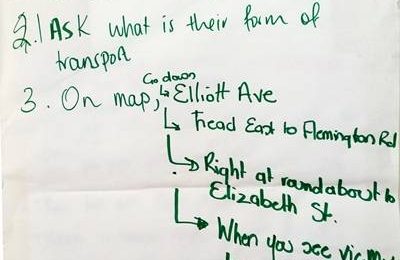 2. Ask what is their form of
transport
3. On map, Go down Elliott Ave
Head East to Flemington Rd
Right at roundabout to
Elizabeth St.
When you see Vic